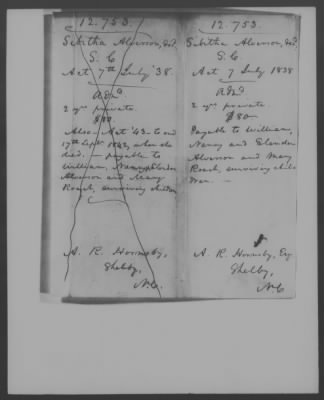 12.753.
Sebitha Alverson, decd.
S. C.
Act 7th July '38.
Adjd
2 yrs private.
$80.
Also Act '43 to end
17th Sept 1843, when she
died. — payable to
William, Nancy, Elender
Alverson and Mary
Roach, surviving children
A. R. Hornsby,
Shelby,
N.C.
12.753.
Sebitha Alverson, decd.
S. C.
Act 7 July 1838
Adjd
2 yrs private.
$80—
Payable to William,
Nancy and Elender
Alverson and Mary
Roach, surviving child-
ren. —
A. R. Hornsby, Esq
Shelby,
N.C